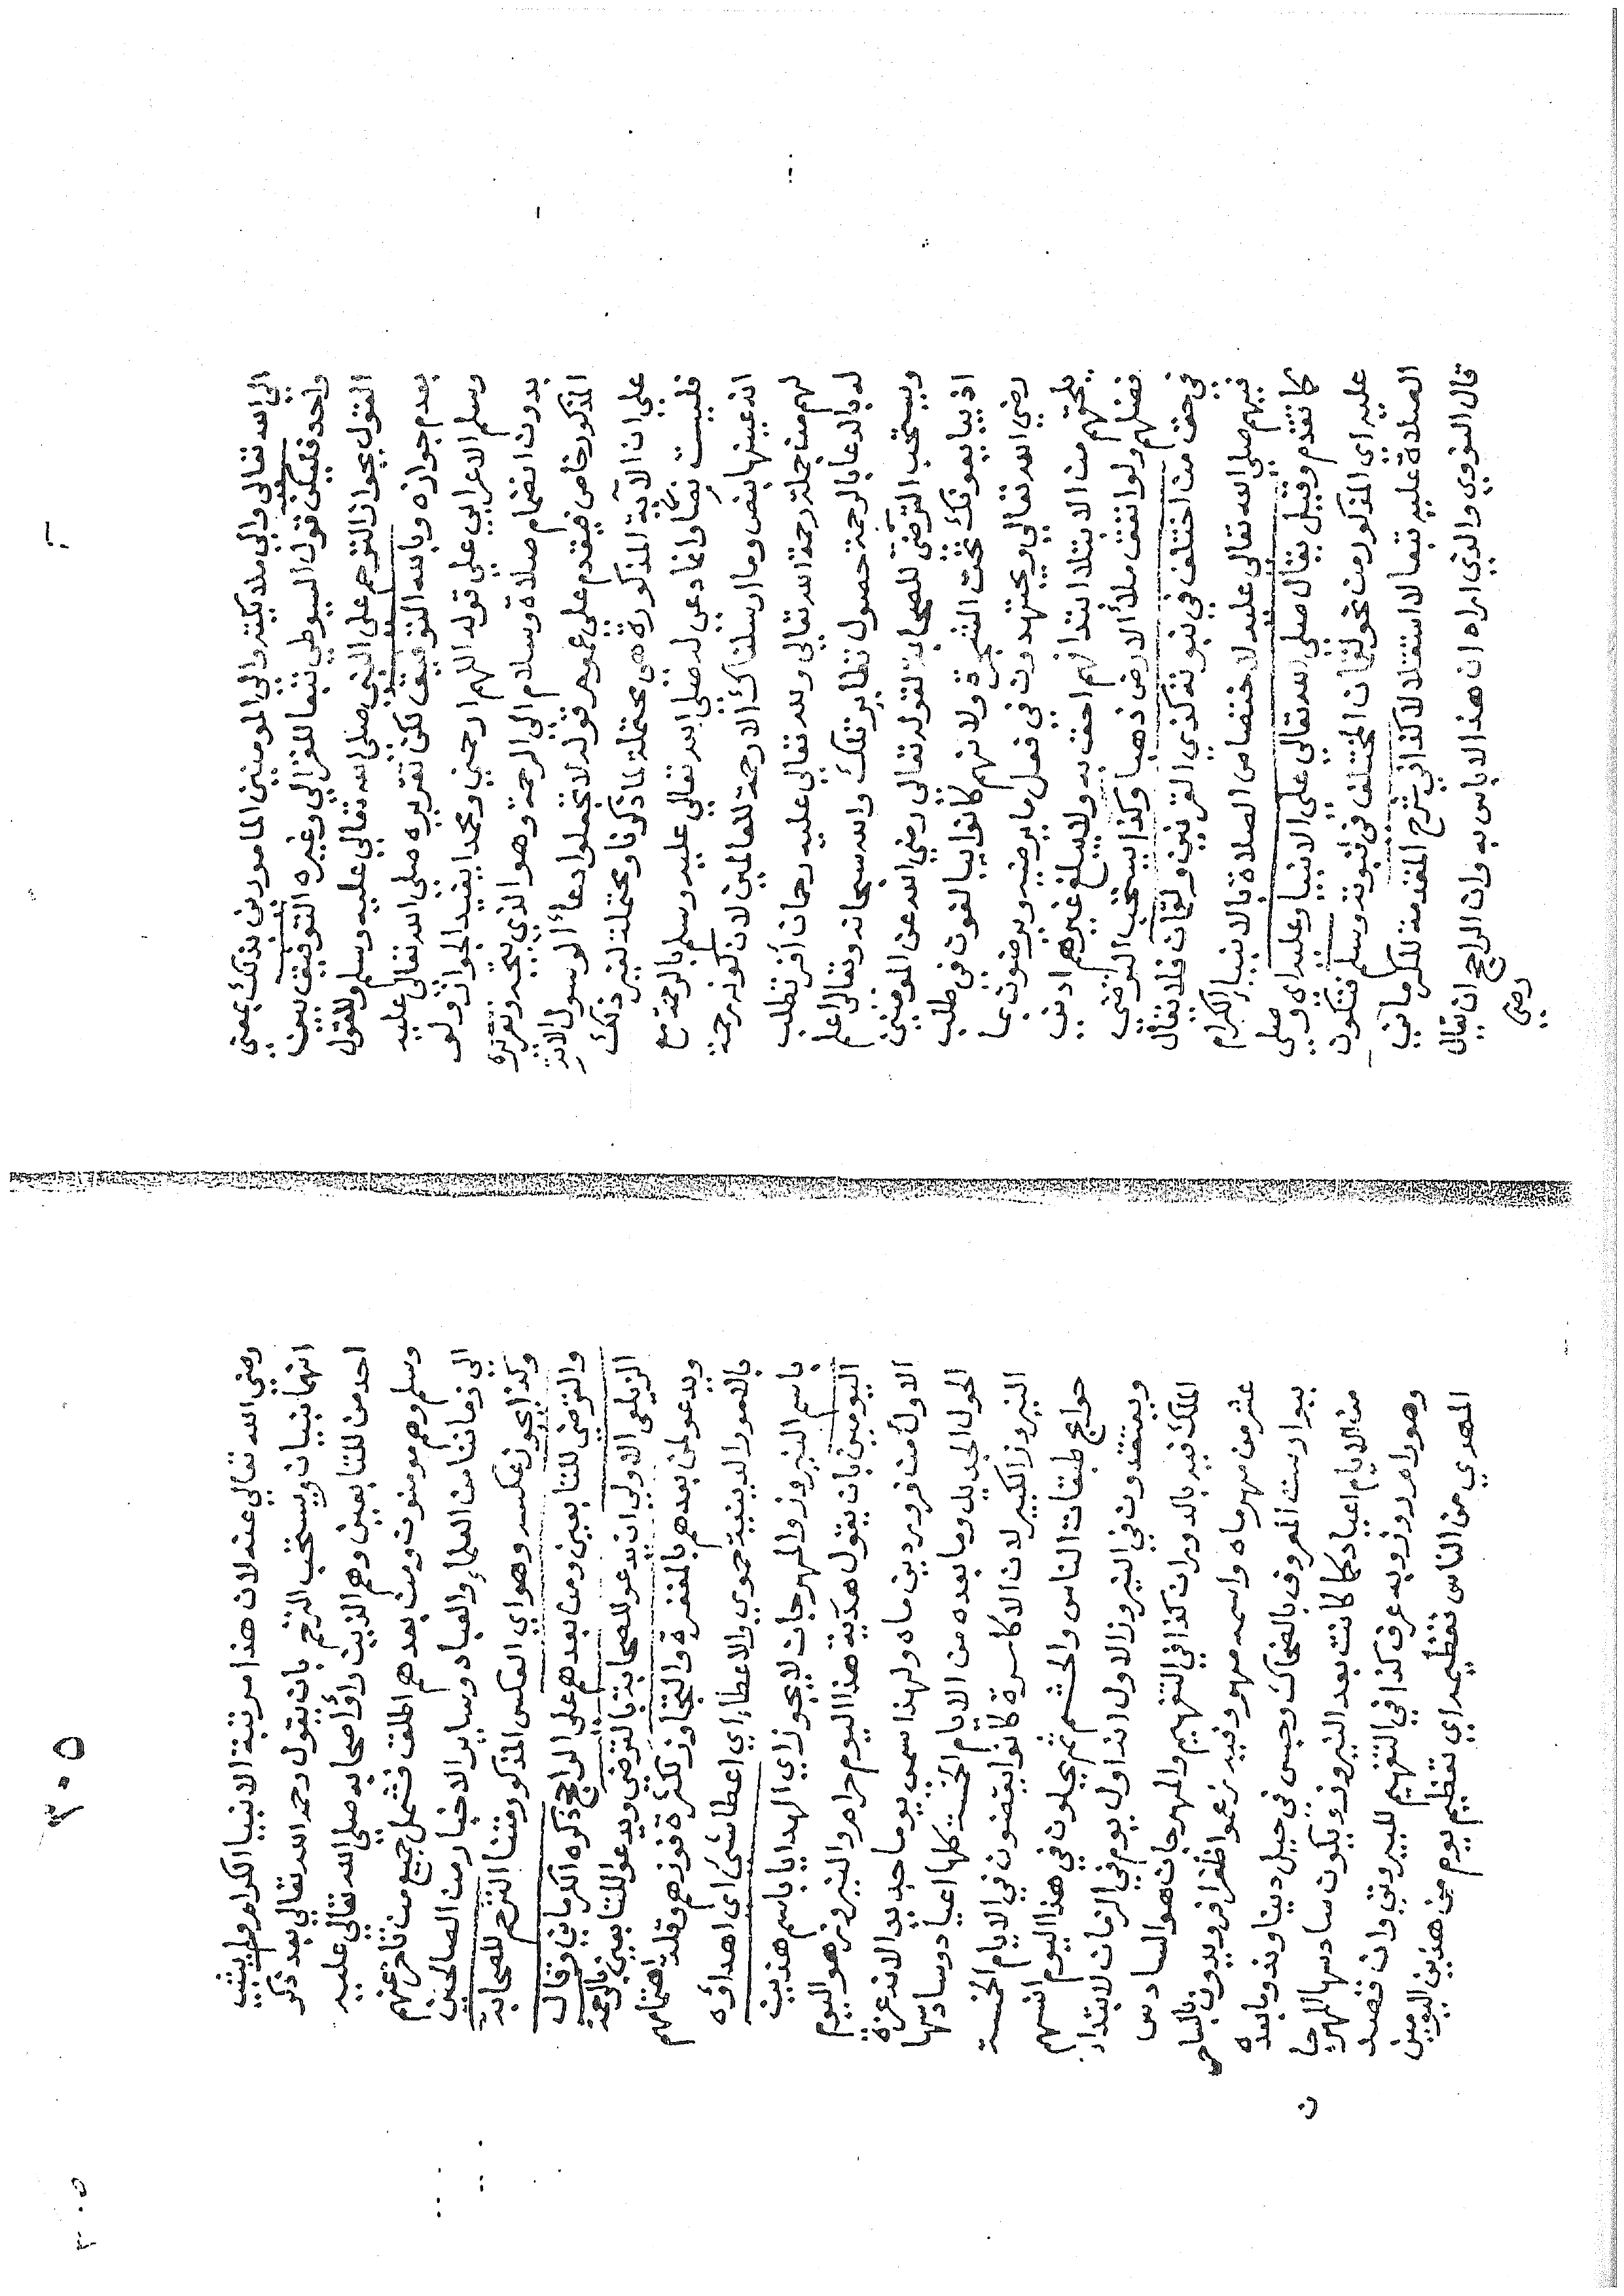 الى الله تعالى والى ملائكته والى المومنين المامورين بذلك بمعنى
واحد فليكن قول السيوطي تبعا للغزالي وغيره التوفيق بين
القول بجواز الترحم على النبي صلى الله تعالى عليه وسلم والقول
بعدم جوازه وبالله التوفيق لكن تقريره صلى الله تعالى عليه
وسلم الاعرابي على قوله اللهم ارحمني ومحمدا يفيد الجواز ولو
بدون انضمام صلاة وسلام الى الرحمة وهو الذي يتجه وتقريره
المذكور خاص فيقدم على عموم قوله لا تجعلوا دعاء الرسول الاية
على ان الآية المذكورة هي محتملة لما ذكرنا ومحتملة لغير ذلك
فليست بنص وانما دعي له صلى الله تعالى عليه وسلم بالرحمة مع
انه عينها بنص وما ارسلناك الا رحمة للعالمين لان كونه رحمة
لهم من جملة رحمة الله تعالى ولله تعالى عليه رحمات أخر تطلب
له بالدعا بالرحمة حصول نظاير تلك والله سبحانه وتعالى اعلم
ويستحب الترضى للصحابة لقوله تعالى رضي الله عن المؤمنين
اذ يبايعونك تحت الشجرة ولانهم كانوا يبالغون في طلب
رضي الله تعالى ويجتهدون في فعل ما يرضيه ويرضون بما
يلحقهم من الابتلا ابتدا فهم احق به ولا يبلغ غيرهم ادنى
فضلهم ولو انفق ملأ الارض ذهبا وكذا يستحب الترضي
في حق من اختلف في نبوته كذي القرنين ولقمان فلا يقال
فيهم صلى الله تعالى عليه لاختصاص الصلاة بالانبياء الكرام
كما تقدم وقيل يقال صلى الله تعالى على الانبيا وعليه اي وصلى
عليه اي المذكور من نحو لقمان المختلف في نبوته وسلم فتكون
الصلاة عليه تبعا لا استقلالا كذا في شرح المقدمة للكرماني
قال النووي والذي اراه ان هذا لا باس به وان الراجح ان يقال
رضي
٣٠٥
رضي الله تعالى عنه لان هذا مرتبة الانبيا الكرام ولم يثبت
انهما نبيان ويستحب الترحم بان يقول رحمه الله تعالى بعد ذكر
احد من للتابعين وهم الذين رأوا اصحابه صلى الله تعالى عليه
وسلم وهم مومنون ومن بعدهم اطلق فشمل جميع من تاخر عنهم
الى زماننا من العلماء والعباد وساير الاخيار من الصالحين
وكذا يجوز عكسه وهو اي العكس المذكور هنا الترحم للصحابة
والترضى للتابعين ومن بعدهم على الراجح ذكره الكرماني وقال
الزيلعى الاولى ان يدعو للصحابة بالترضي ويدعو للتابعين بالرحمة
ويدعو لمن بعدهم بالمغفرة والتجاوز لكثرة ذنوبهم وقلة اهتمامهم
بالامور الدينية حموي والاعطاء اي اعطا شئ اي اهداؤه
باسم النيروز والمهرجان لا يجوز اي الهدايا باسم هذين
اليومين بان يقول هدية هذا اليوم حرام والنيروز هو اليوم
الاول من فروردين ماه ولهذا سمى يوما جديدا لانه غرة
الحول الجديد وما بعده من الايام الخمسة كلها اعياد وسادسها
النيروز الكبير لان الاكاسرة كانوا يقضون في الايام الخمسة
حوايج طبقات الناس والحشم ثم يخلون في هذا اليوم انسهم
ويعتقدون في النيروز الاول انه اول يوم في الزمان لابتداء
الملك فيه بالدوران كذا في التفهيم والمهرجان هو السادس
عشر من مهرماه واسمه مهر وفيه زعموا ظفر افريدون بالساحر
بيوارست المعروف بالضحاك وحبس في جبل دنباوند وما بعده
من الايام اعياد كما كانت بعد النيروز ويكون سادسها المهرجان
وهو رام روز وبه عرف كذا في التفهيم للبيروني وان قصد
المهدي من الناس تعظيمه اي تعظيم يوم من هذين اليومين